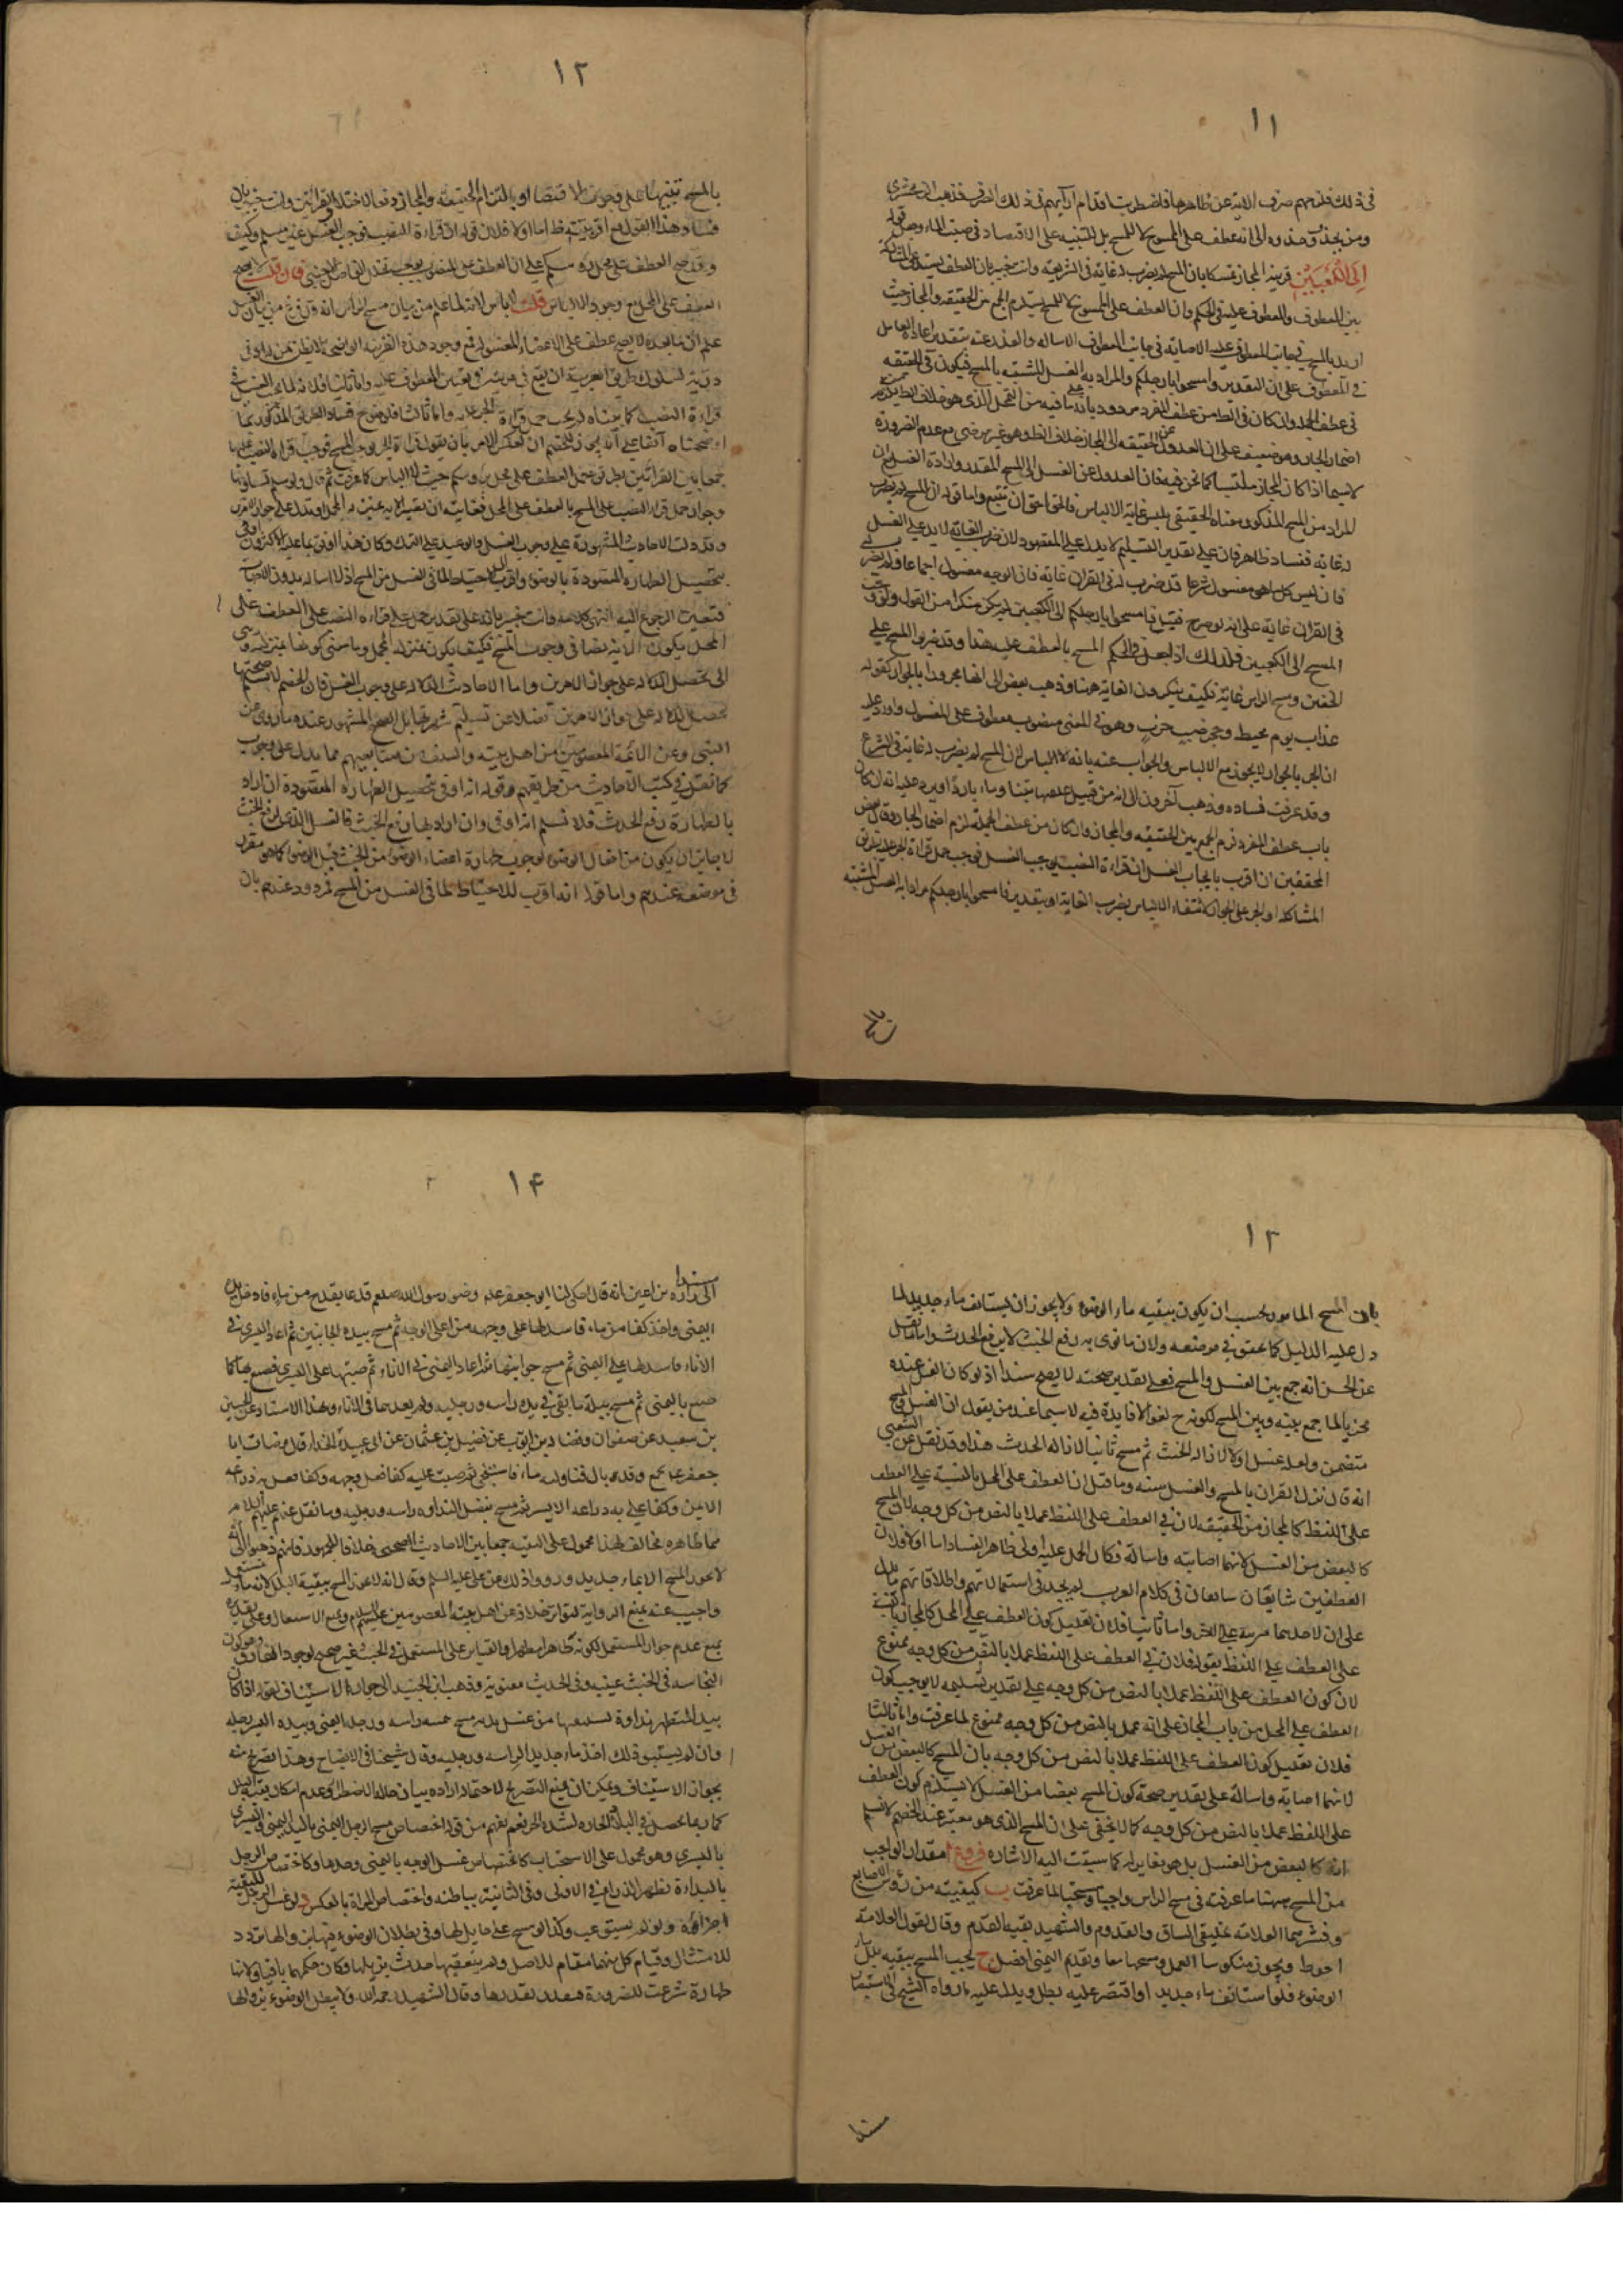 ١١
في ذلك فلزمهم صرف الاية عن ظاهرها فاضطربت اقدام ارآيهم في ذلك الصرف فذهب الزمخشري
ومن يحذو حذوه الى انه عطف على الممسوح لا للمسح بل للتنبيه على الاقتصاد في صب الماء وجعل قوله
اِلَى الكَعْبَيْنِ قرينة المجاز تمسكا بان المسح لم يضرب له غاية في الشريعة وانت خبير بان العطف يستدعي المشاركة
بين المعطوف والمعطوف عليه في الحكم وان العطف على الممسوح لا للمسح يستلزم الجمع بين الحقيقة والمجاز حيث
اريد بالمسح في جانب المعطوف عليه الاصابة وفي جانب المعطوف الاسالة والعذر عنه بتقدير اعادة العامل
في المعطوف على ان التقدير وامسحوا بارجلكم والمراد به الغسل الشبيه بالمسح فيكون في الحقيقة
في عطف الجملة وان كان في الظ من عطف المفرد مردود بانه مع ما فيه من التمحل الذي هو خلاف الظ
اضمار الجار وهو ضعيف على ان العدول عن الحقيقة الى المجاز خلاف الظ وهو غير مرضي مع عدم الضرورة
لاسيما اذا كان المجاز ملتبسا كما نحن فيه فان العدول عن الغسل الى المسح المقدر وارادة الغسل
المراد من المسح المذكور معناه الحقيقي يلبس غاية الالباس فالحق احق ان تتبع واما قوله ان المسح لم يضرب
له غاية ففساده ظاهر فان على تقدير التسليم لا يدل على المقصود لان ضرب الغاية لا يدل على الغسل
فانه ليس كل ما هو مغسول شرعا قد ضرب له في القران غاية فان الوجه مغسول اجماعا ولم يضرب
في القران غاية على انه لو صرح فقيل فامسحوا بارجلكم الى الكعبين لم يكن منكرا من القول
المسح الى الكعبين فكذلك اذ لجعل في حكم المسح بالعطف عليه هذا وقد ضربوا للمسح على
الخفين ومسح الراس غاية فكيف ينكرون الغاية هنا وذهب بعض الى انها مجرورة بالجوار كقوله
عذاب يوم محيط وجحر ضب خرب وهو في المعنى منصوب معطوف على المغسول واورد عليه
ان الجر بالجوار لا يجوز مع الالباس والجواب عنه بانه لا الباس لان المسح لم يضرب له غاية في الشرع
وقد عرفت فساده وذهب آخرون الى انه من قبيل علفتها تبنا وماء باردا ويرد عليه انه ان كان
باب عطف المفرد لزم الجمع بين الحقيقة والمجاز وان كان من عطف الجملة لزم اضمار الجار وقال بعض
المحققين ان اقرب بايجاب الغسل ان قراءة النصب يوجب الغسل فوجب حمل قراءة الجر على
المشاكلة او الجر على الجوار لانتفاء الالباس بضرب الغاية او بتقدير فامسحوا بارجلكم مرادا به الغسل المشبه
١٢
بالمسح تنبيها على وجوب الاقتصاد او بالتزام الحقيقة والمجاز دفعا لاختلاف القرائتين وانت خبير بان
فساد هذا القول مع اقربيته ظ اما اولا فلان قوله ان قراءة النصب توجب الغسل غير مسلم وكيف
وقد صح العطف على محل رؤسكم على ان العطف على المنصوب يوجب تخلل الفاصل الاجنبي فان قلت لا يصح
العطف على المحل مع وجود الالباس قلت لا الباس لانه لما علم من بيان مسح الراس انه قد فرغ من بيان الغسل
علم ان ما بعده لا يصح عطفه على الاعضاء المغسولة فمع وجود هذه القرينة الواضحة لا يظن بمن له ادنى
دربة لسلوك طريق العربية ان يقع في مرية في تعيين المعطوف عليه واما ثانيا فلانه لما لم يجب الغسل في
قراءة النصب كما بيناه لم يجب حمل قراءة الجر عليه واما ثالثا فلوضوح فساد الطرق المذكورة بما
اوضحناه آنفا على انه يجوز للخصم ان يعكس الامر بان يقول قراءة الجر يوجب المسح فوجب قراءة النصب عليها
جمعا بين القرائتين بطريق حمل العطف على محل رؤسكم حيث لا الباس كما عرفت ثم قال ولو سلم تساويهما
وجواز حمل قراءة النصب على المسح بالعطف على المحل فغايته ان يصير الاية بمنزلة المجمل
وقد دلت الاحاديث المشهورة على وجوب الغسل والوعيد على الترك وكان هذا اوفق بما عليه الاكثرون واوفى
بتحصيل الطهارة المقصودة بالوضوء واقرب للاحتياط لما في الغسل من المسح اذ لا اسالة بدون الاصابة
فتعين الرجوع اليه انتهى كلامه وانت خبير بانه على تقدير حمل قراءة النصب على العطف على
المحل يكون الاية نصا في وجوب المسح فكيف يكون بمنزلة المجمل
الى تحصيل الدلالة على جواز الامرين واما الاحاديث الدالة على وجوب الغسل فان الخصم لا يسلم صحتها
فضلا عن تسليم شهرتها بل الصحيح المشهور عنده ما روي عن
النبي وعن الائمة المعصومين من اهل بيته والسلف من متابعيهم مما يدل على وجوب
كما تقرر في كتب الاحاديث من طريقهم وقوله انه اوفى بتحصيل الطهارة المقصودة ان اراد
بالطهارة رفع الحدث فلا نسلم انه اوفى وان اراد بها رفع الخبث فالغسل الذي لرفع الخبث
لا بد ان يكون من افعال الوضوء لوجوب طهارة اعضاء الوضوء من الخبث قبل الوضوء كما هو مقرر
في موضعه عندهم واما قوله انه اقرب للاحتياط لما في الغسل من المسح فمردود عندهم بان
١٣
بان المسح المامور يجب ان يكون ببقية ماء الوضوء ولا يجوز ان يستانف ماء جديد لما
دل عليه الدليل كما حقق في موضعه ولان ما نوى به رفع الخبث لا يرفع الحدث واما ما نقل
عن الحسن انه جمع بين الغسل والمسح فعلى تقدير صحته لا يصح سندا اذ لو كان الغسل عنده
مجزيا لما جمع بينه وبين المسح لكونه ح لغوا لا فايدة فيه لاسيما عند من يقول ان الغسل
متضمن ولعله غسل اولا لازالة الخبث ثم مسح ثانيا لازالة الحدث هذا وقد نقل عن الشعبي
انه قال نزل القران بالمسح والغسل سنة وما قيل ان العطف على المحل بالنسبة على العطف
على اللفظ كالمجاز من الحقيقة لان في العطف على اللفظ عملا بالنص من كل وجه لان المسح
كالبعض من الغسل لانهما اصابة واسالة فكان الحمل عليه اولى ظاهر الفساد اما اولا فلان
العطفين شايعان سايغان في كلام العرب لم يجد في استعمالاتهم واطلاقاتهم ما يدل
على ان لاحدهما مزية على الاخر واما ثانيا فلان تعليل كون العطف على المحل كالمجاز بالنسبة
على العطف على اللفظ بقوله فلان في العطف على اللفظ عملا بالنص من كل وجه ممنوع
لان كون العطف على اللفظ عملا بالنص من كل وجه على تقدير تسليمه لا يوجب كون
العطف على المحل من باب المجاز على انه عمل بالنص من كل وجه ممنوع لما عرفت واما ثالثا
فلان تعليل كون العطف على اللفظ عملا بالنص من كل وجه بان المسح كالبعض من الغسل
لانهما اصابة واسالة على تقدير صحة كون المسح بعضا من الغسل لا يستلزم كون العطف
على اللفظ عملا بالنص من كل وجه كما لا يخفى على ان المسح الذي هو معتبر عند الخصم لا نسلم
انه كالبعض من الغسل بل هو مغاير له كما سبقت اليه الاشارة فروع ا مقدار الواجب
من المسح هنا ما عرفته في مسح الراس واجبا ومستحبا لما عرفت ب كيفيته من رؤس الاصابع
احوط ويجوز منكوسا العمل ومسحهما معا وتقديم اليمنى افضل ج يجب المسح ببقية بلل
الوضوء فلو استانف ماء جديد او اقتصر عليه بطل ويدل عليه ما رواه الشيخ في الاستبصار
مسندا
١٤
مسندا
الى زرارة بن اعين انه قال حكى لنا ابو جعفر عم وضوء رسول الله صلعم فدعا بقدح من ماء فادخل يده
اليمنى واخذ كفا من ماء فاسدلها على وجهه من اعلى الوجه ثم مسح بيده الجانبين ثم اعاد اليسرى في
الاناء فاسدلها على اليمنى ثم مسح جوانبها ثم اعاد اليمنى في الاناء ثم صبها على اليسرى فصنع بها كما
صنع باليمنى ثم مسح ببلة ما بقي في يده راسه ورجليه ولم يعدهما في الاناء وبهذا الاسناد عن الحسين
بن سعيد عن صفوان وفضالة بن ايوب عن فضيل بن عثمان عن ابي عبيدة الحذاء قال وضات ابا
جعفر عم بجمع وقد بال فناولته ماء فاستنجى ثم صببت عليه كفا فغسل وجهه وكفا غسل به ذراعه
الايمن وكفا غسل به ذراعه الايسر ثم مسح بفضل الندا راسه ورجليه وما نقل عنهم عليهم السلام
مما ظاهره مخالف لهذا محمول على التقية جمعا بين الاحاديث الصحيحة خلافا للجمهور فانهم ذهبوا الى انه
لا يجوز المسح الا بماء جديد ورووا ذلك عن علي عليه السلم وقال انه لا يجوز المسح ببقية البلل لانه ماء مستعمل
واجيب عنه بمنع الرواية لتواتر خلافه عن اهل بيته المعصومين عليهم السلام ومنع الاستعمال وعلى تقديره
بمنع عدم جواز المستعمل لكونه طاهرا مطهرا والقياس على المستعمل في الخبث غير صحيح لوجود الفارق
النجاسة في الخبث عينية وفي الحدث معنوية وذهب ابن الجنيد الى جواز الاستيناف لقوله اذا كان
بيد المتطهر نداوة يستبقيها من غسل يديه مسح بيمينه راسه ورجله اليمنى وبيده اليسرى رجله
وان لم يستبق ذلك اخذ ماء جديدا لراسه ورجليه وقال شيخنا في الايضاح وهذا تصريح منه
بجواز الاستيناف ويمكن ان يمنع التصريح لاحتمال ارادة بيان حالة الاضطرار وعدم امكان بقية البلل
كما ربما يحصل في البلاد الحارة لشدة الحر نعم يفهم من قوله اختصاص مسح الرجل اليمنى باليد اليمنى واليسرى
باليسرى وهو محمول على الاستحباب كاختصاص غسل الوجه باليمنى وحدها وكاختصاص الرجل
بالبداءة بظهر الذراعين في الاولى وفي الثانية بباطنه واختصاص المراة بالعكس د لو غسل الرجل للتقية
اجزأه ولو لم يستوعب وكذا لو مسح على حايل لها وفي بطلان الوضوء بزوالها تردد
للامتثال وقيام كل منهما مقام للاصل ولم يتعقبها حدث يزيلها وكان حكمهما باقيا ولانها
طهارة شرعت للضرورة فتقدر بقدرها وقال الشهيد رحمه الله ولا يبطل الوضوء بزوالها